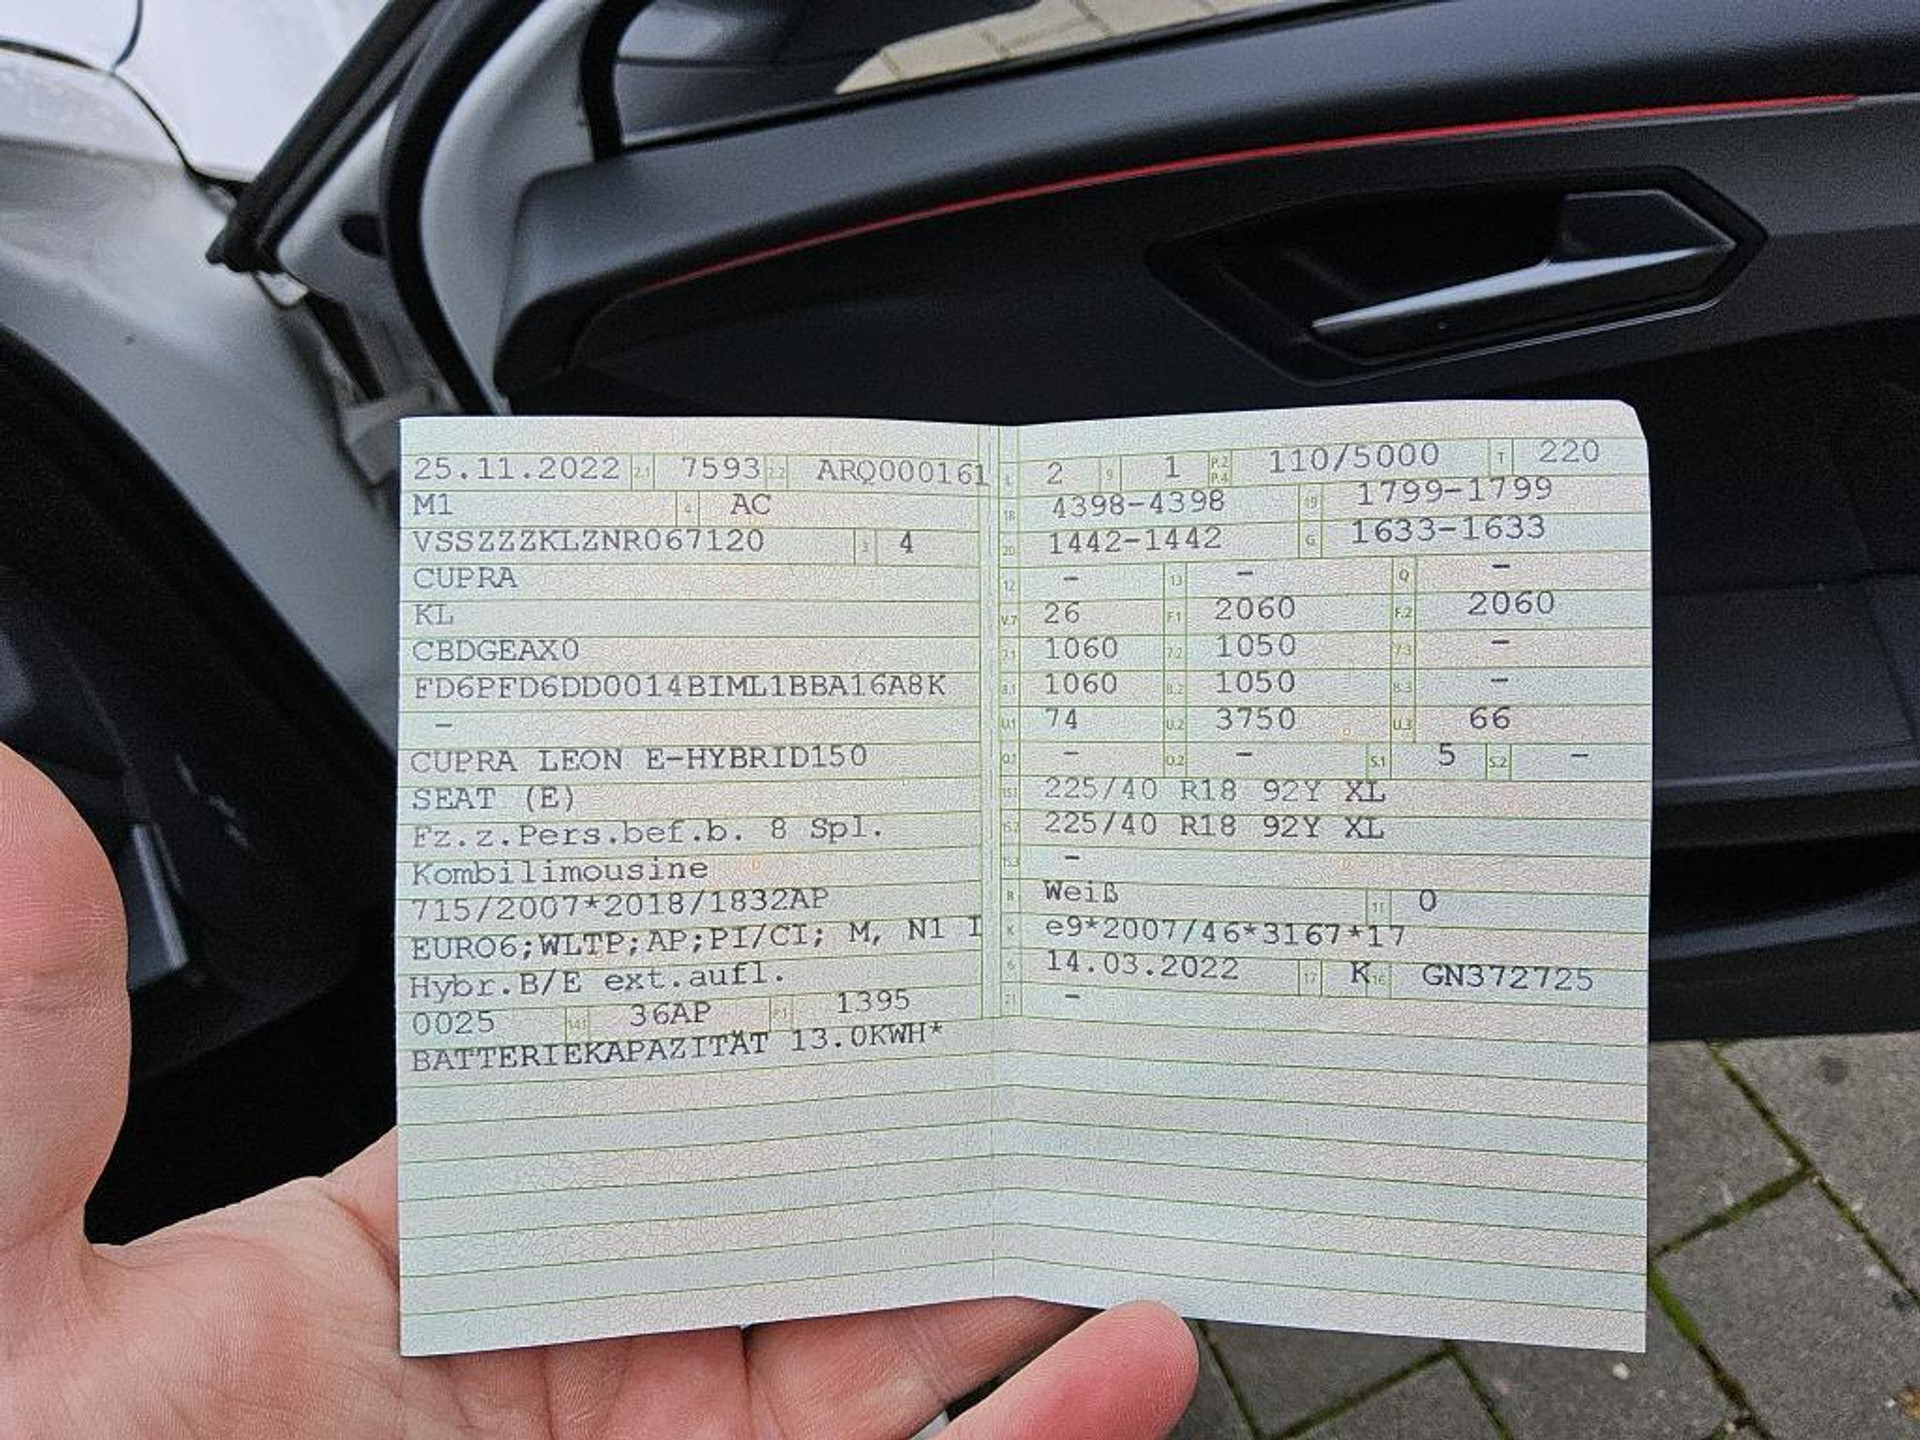 25.11.2022 2.1 7593 2.2 ARQ000161
M1 4 AC
VSSZZZKLZNR067120 3 4
CUPRA
KL
CBDGEAX0
FD6PFD6DD0014BIML1BBA16A8K
–
CUPRA LEON E-HYBRID150
SEAT (E)
Fz.z.Pers.bef.b. 8 Spl.
Kombilimousine
715/2007*2018/1832AP
EURO6;WLTP;AP;PI/CI; M, N1 I
Hybr.B/E ext.aufl.
0025 14.1 36AP P.1 1395
BATTERIEKAPAZITÄT 13.0KWH*
L 2 9 1 P.2 P.4 110/5000 T 220
18 4398-4398 19 1799-1799
20 1442-1442 G 1633-1633
12 – 13 – Q –
V.7 26 F.1 2060 F.2 2060
7.1 1060 7.2 1050 7.3 –
8.1 1060 8.2 1050 8.3 –
U.1 74 U.2 3750 U.3 66
O.1 – O.2 – S.1 5 S.2 –
15.1 225/40 R18 92Y XL
15.2 225/40 R18 92Y XL
15.3 –
R Weiß 11 0
K e9*2007/46*3167*17
6 14.03.2022 17 K 16 GN372725
21 –